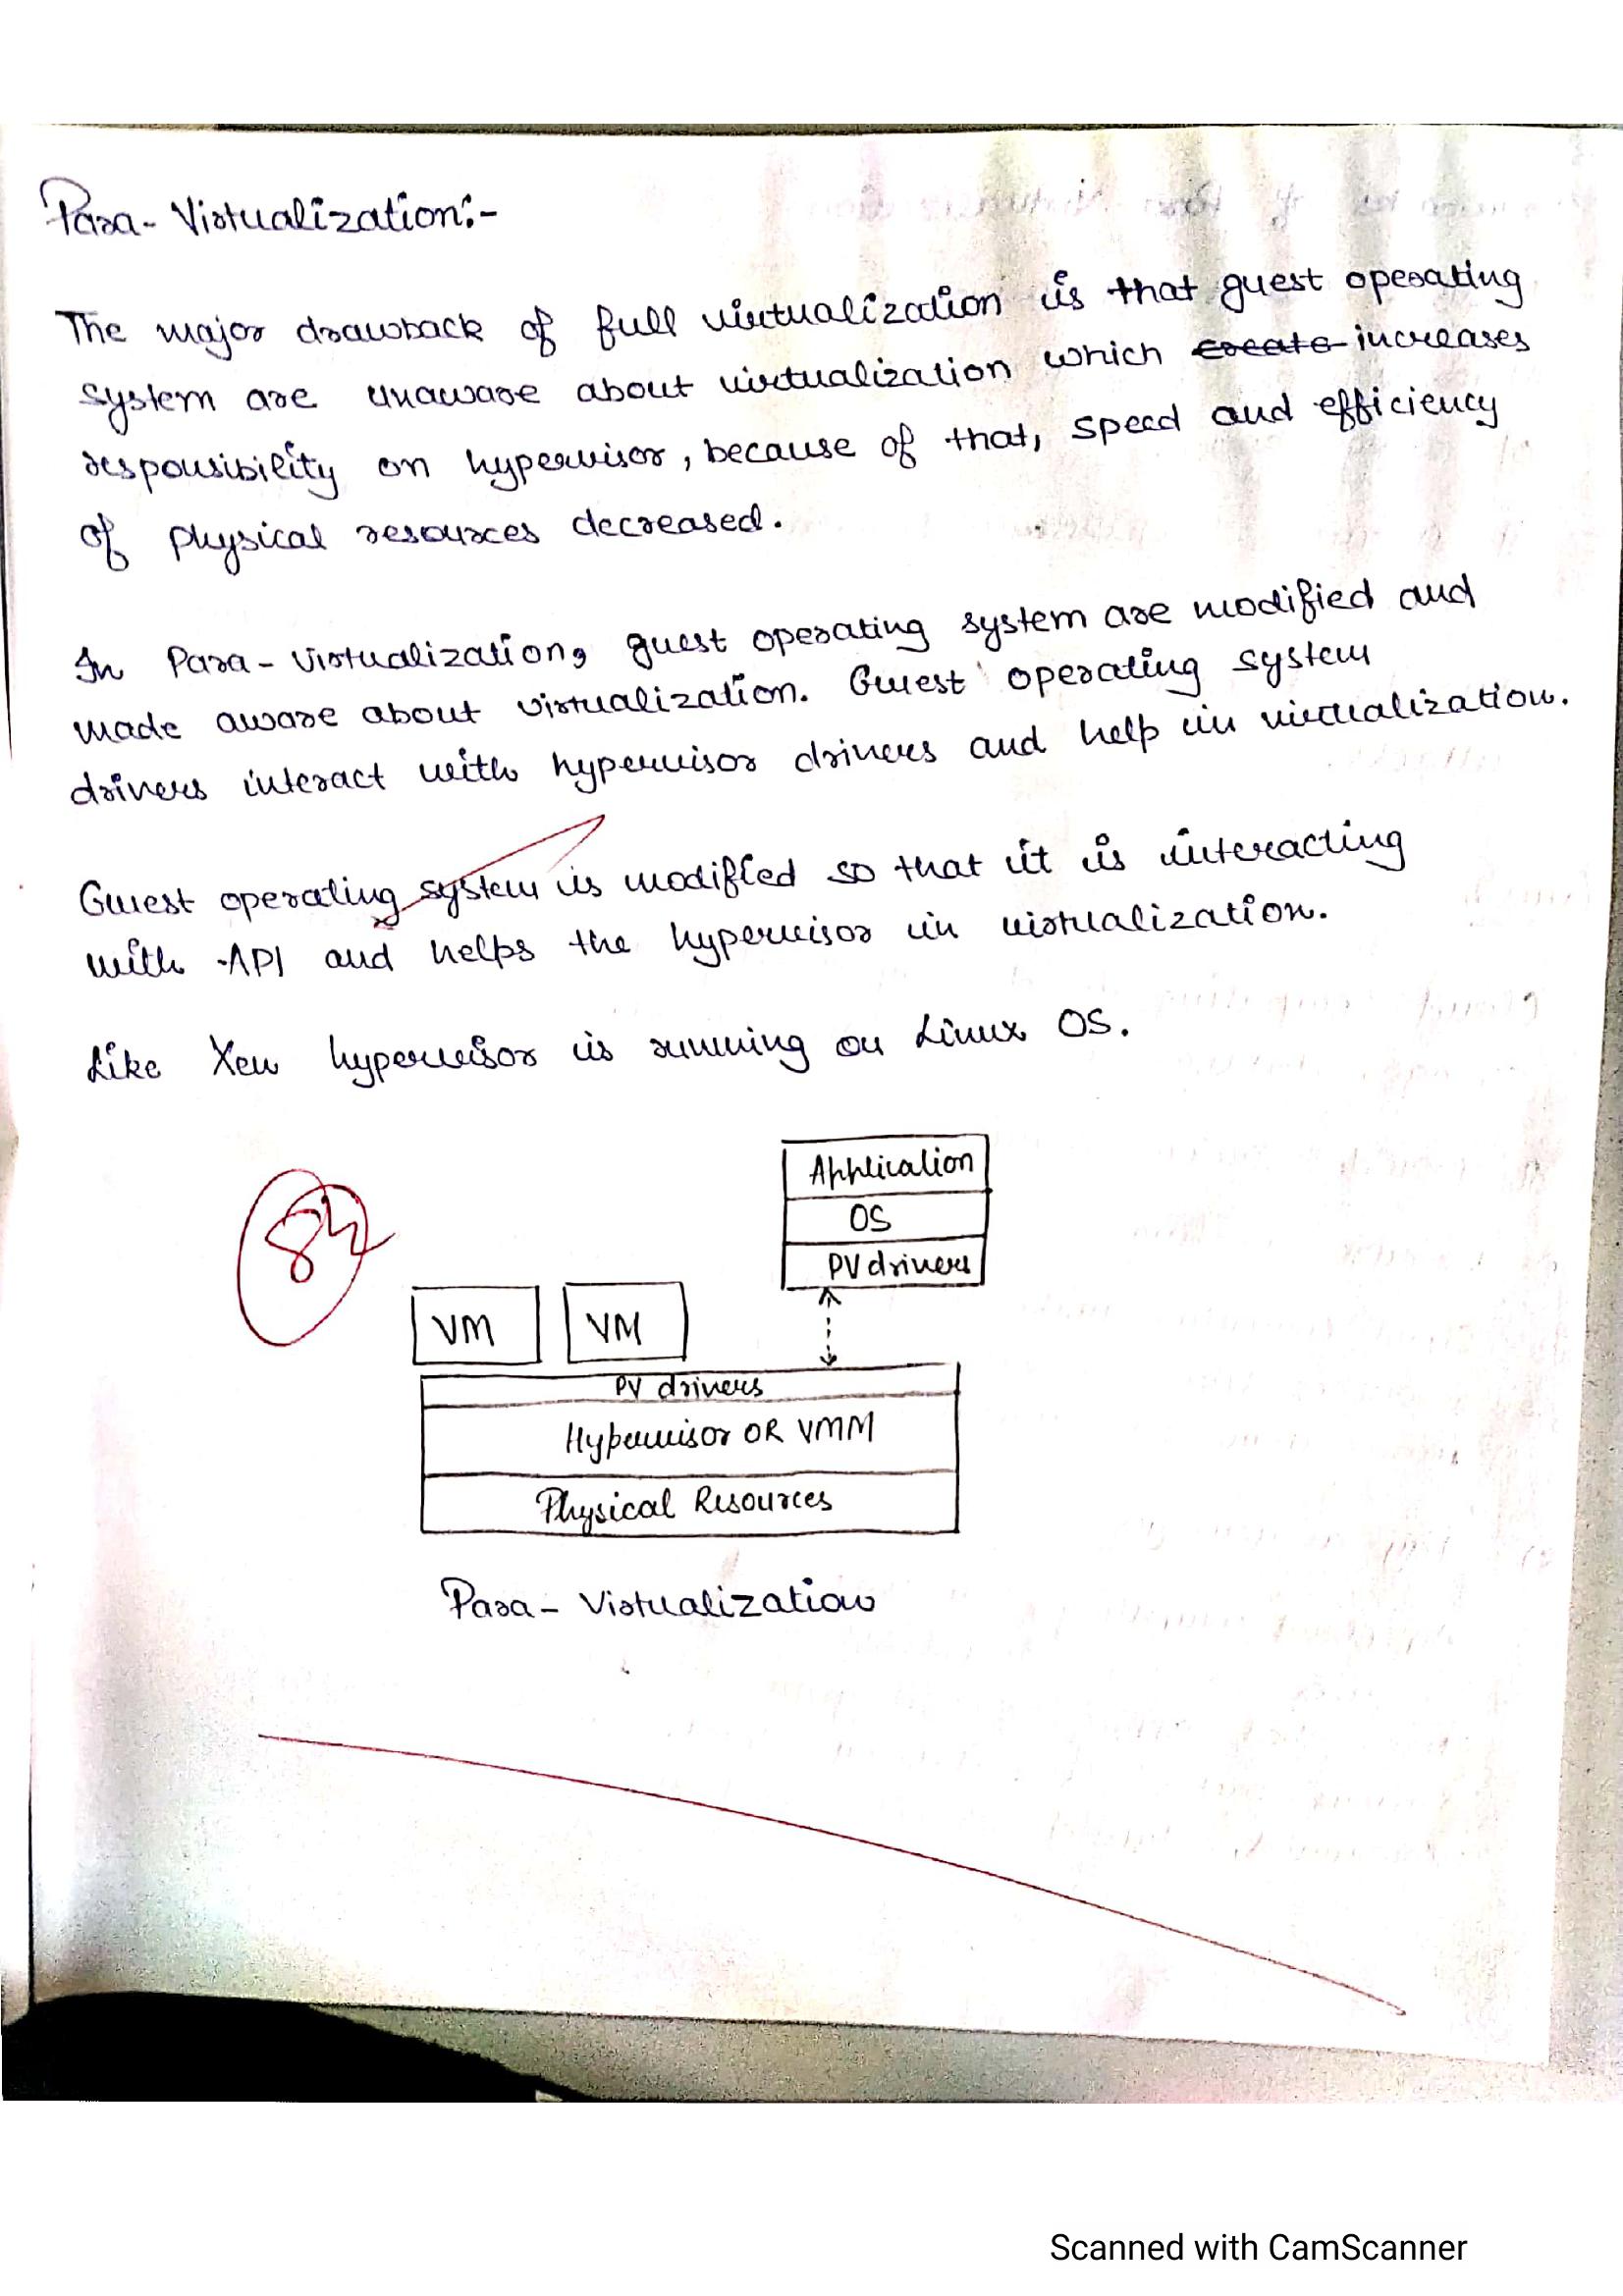 Para-Virtualization:-
The major drawback of full virtualization is that guest operating
system are unaware about virtualization which create increases
responsibility on hypervisor, because of that, speed and efficiency
of physical resources decreased.
In Para-Virtualization, guest operating system are modified and
made aware about virtualization. Guest operating system
drivers interact with hypervisor drivers and help in virtualization.
Guest operating system is modified so that it is interacting
with API and helps the hypervisor in virtualization.
Like Xen hypervisor is running on Linux OS.
Application
OS
PV drivers
VM VM
PV drivers
Hypervisor OR VMM
Physical Resources
Para-Virtualization
Scanned with CamScanner